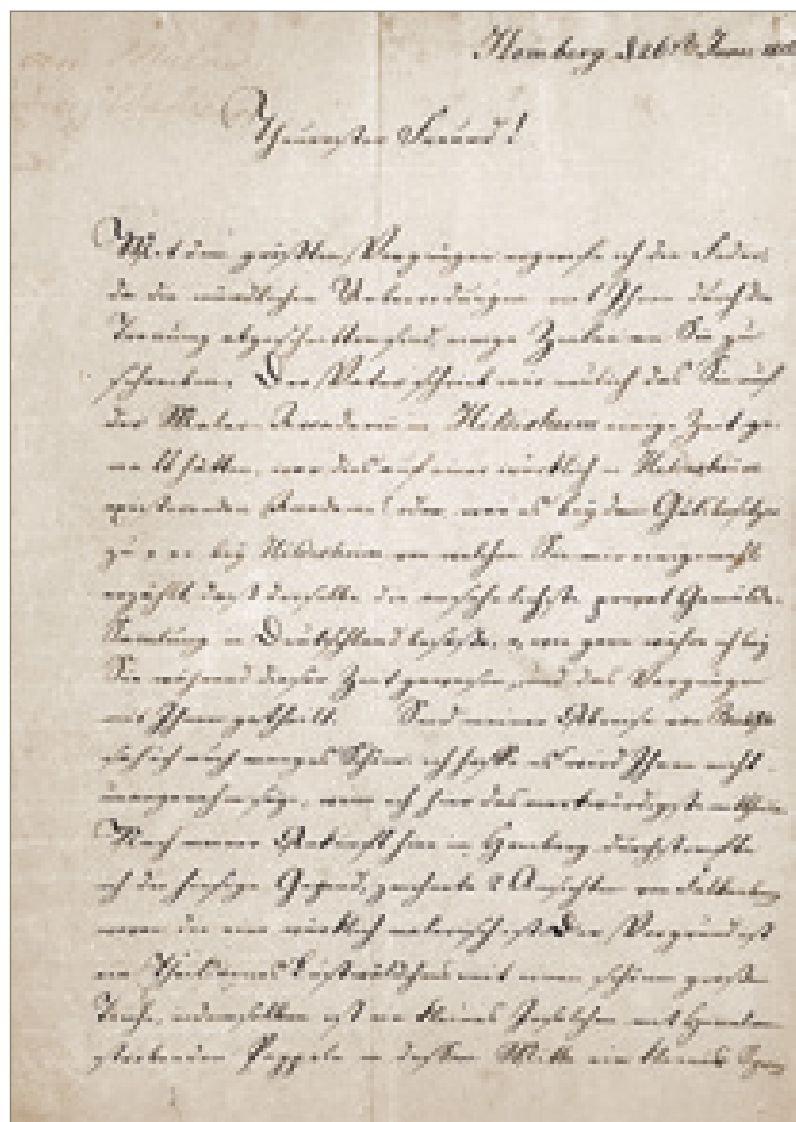 Homberg d 26ten Juni
Theuerster Freund!
Mit dem größten Vergnügen ergreife ich die Feder,
da die mündlichen Unterredungen mit Ihnen durch die
Trennung abgeschnitten sind, einige Zeilen an Sie zu
schreiben. Der Vater schrieb mir neulich das Sie auf
der Maler Academie in Hildesheim einige Zeit ge-
malt hätten, war dies auf einer wirklich in Hildesheim
existierenden Academie oder war es bey dem Gutsbesitzer
zu bey Hildesheim von welchem Sie mir
erzählt, dast derselbe die ansehnlichste privat Gemälde-
Samlung in Deutschland besäße, o, wie gern wäre ich bey
Sie während dieser Zeit gewesen, und das Vergnügen
mit Ihnen getheilt. Seid meiner Abreise von
sah ich auch manches Schöne ich hoffe es wird Ihnen nicht
unangenehm sein, wenn ich hier das merkwürdigste
Nach meiner Ankunft hier in Homberg durchstreifte
ich die hiesige Gegend, zeichnete 2 Ansichten von Falkenberg
wovon die eine wirklich malerisch ist. Der Vorgrund ist
ein Theil eines Lustwäldchens mit einem schönen großen
Teiche, in demselben ist ein kleines Inselchen mit
Pappeln in dessen Mitte ein kleines